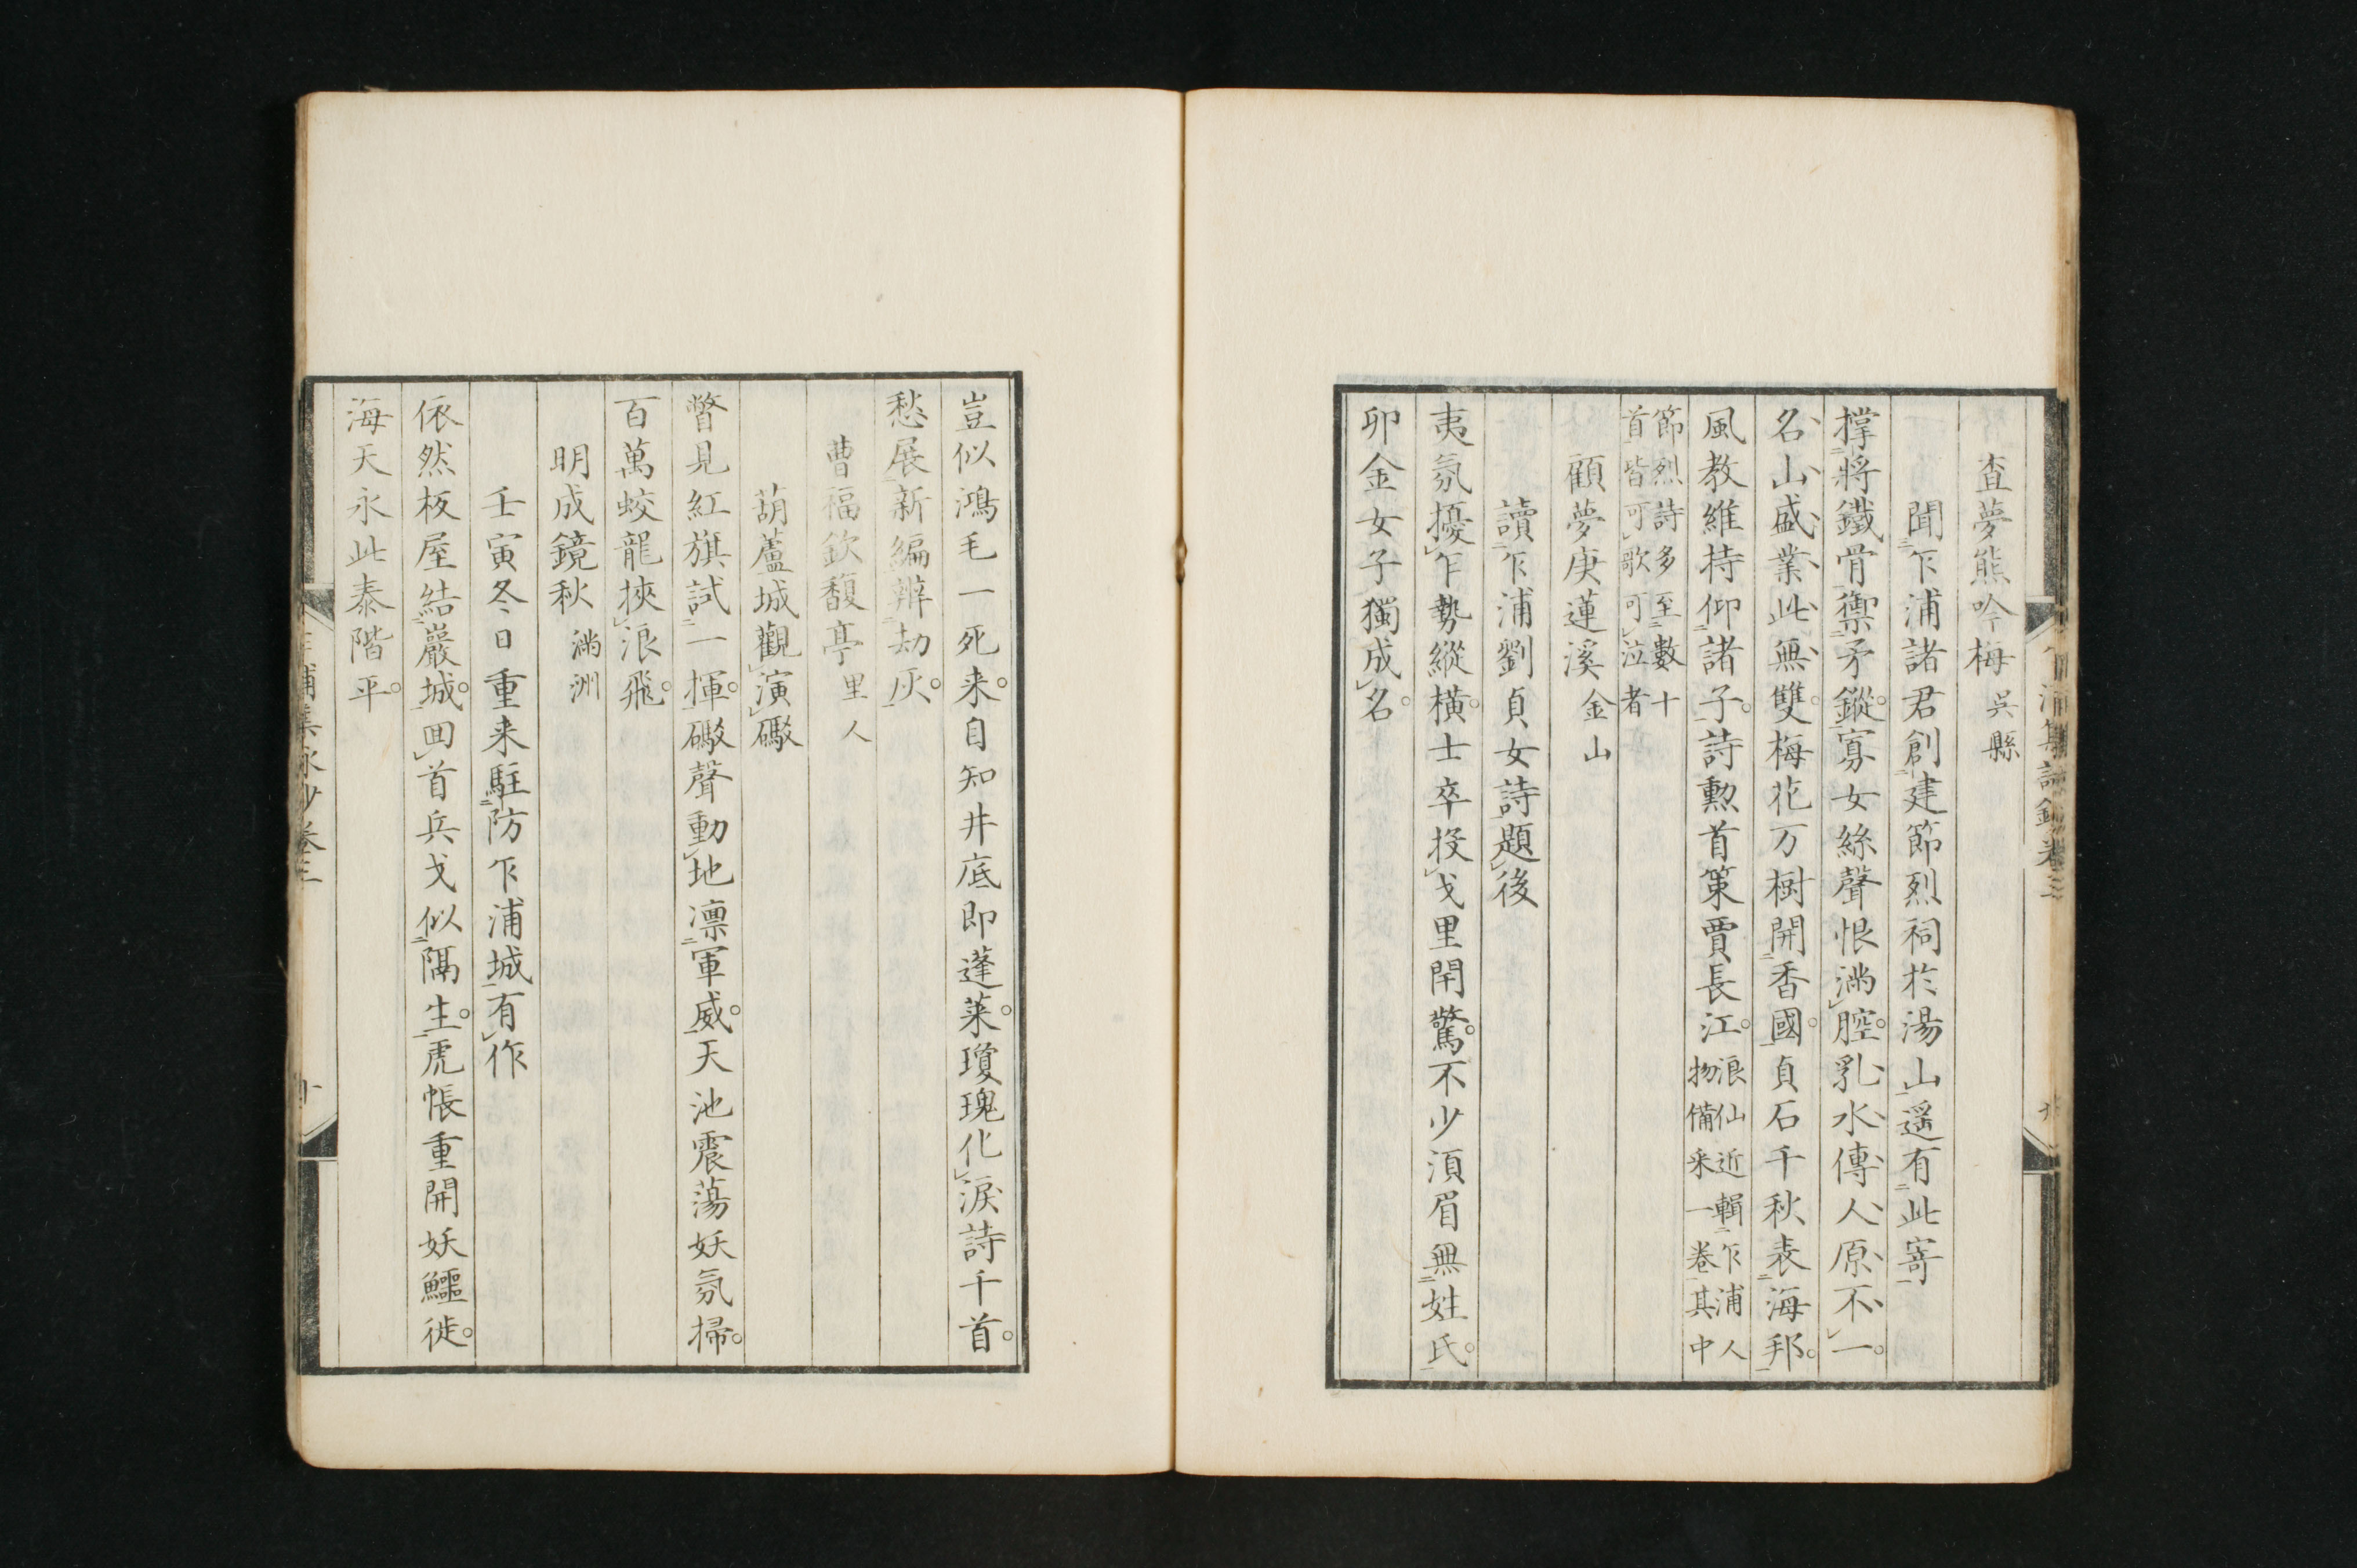 查夢熊吟梅 吳縣
聞乍浦諸君創建節烈祠於湯山遥有此寄
撑將鐵骨禦矛鏦。寡女絲聲恨満腔。乳水傳人原不一。
名山盛業此無雙。梅花万樹開香國。貞石千秋表海邦。
風教維持仰諸子。詩勲首策賈長江。浪仙近輯乍浦人
物備采一卷其中
節烈詩多至數十
首皆可歌可泣者
顧夢庚蓮溪 金山
讀乍浦劉貞女詩題後
夷氛擾乍勢縱橫。士卒投戈里閈驚。不少湏眉無姓氏。
卯金女子獨成名。
豈似鴻毛一死来。自知井底即蓬萊。瓊瑰化淚詩千首。
愁展新編辨劫灰。
曹福欽馥亭 里人
葫蘆城觀演礮
瞥見紅旗試一揮。礮聲動地凛軍威。天池震蕩妖氛掃。
百萬蛟龍挾浪飛。
明成鏡秋 満洲
壬寅冬日重来駐防乍浦城有作
依然板屋結巖城。囬首兵戈似隔生。虎帳重開妖鱷徙。
海天永此泰階平。